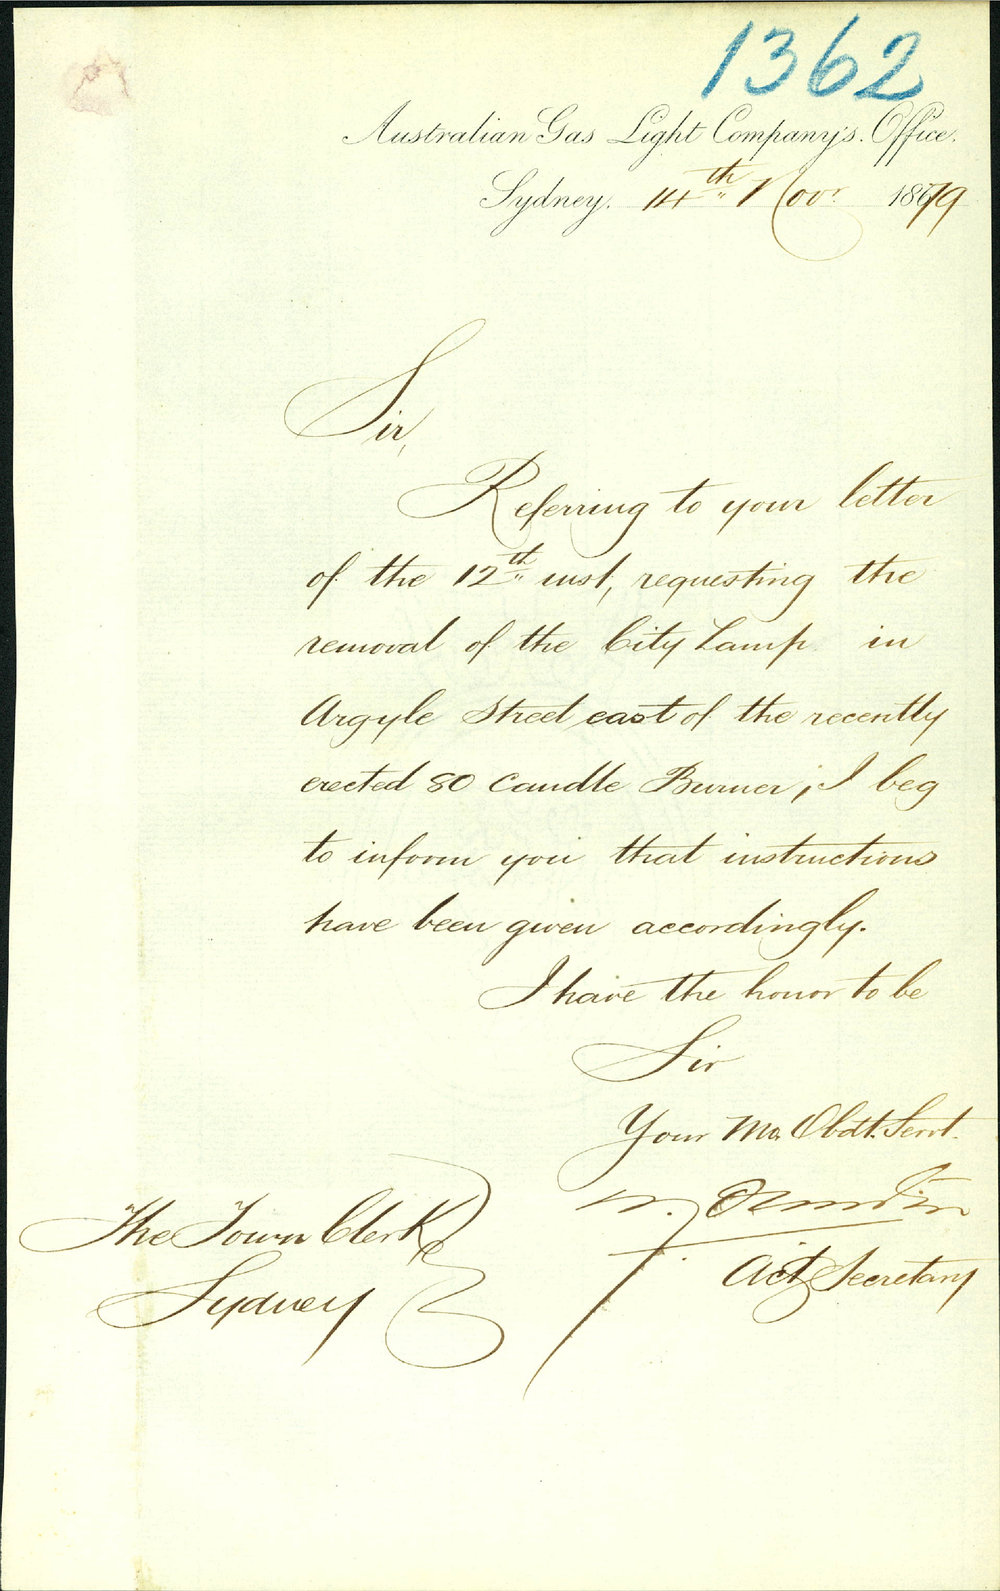 1362
Australian Gas Light Company's Office.
Sydney. 14th Novr. 1879
Sir,
Referring to your letter
of the 12th inst, requesting the
removal of the City Lamp in
Argyle Street east of the recently
erected 80 Candle Burner; I beg
to inform you that instructions
have been given accordingly.
I have the honor to be
Sir
Your Mo. Obdt. Servt.
Act Secretary
The Town Clerk
Sydney